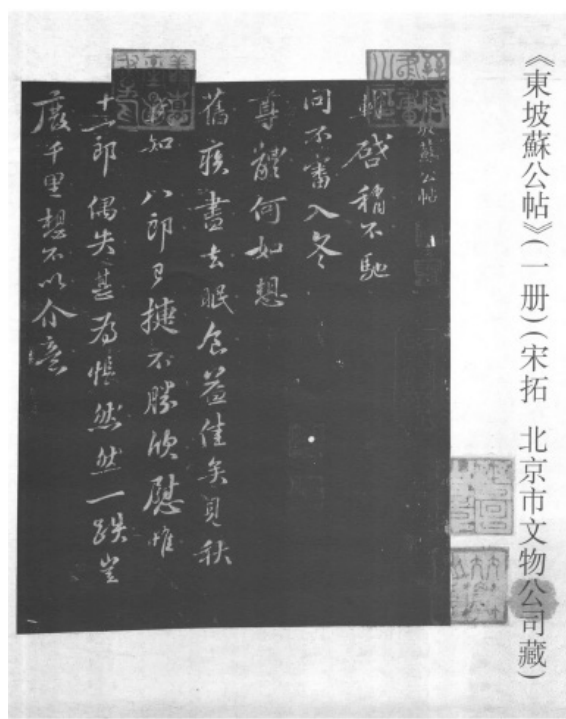 《東坡蘇公帖》(一册)(宋拓 北京市文物公司藏)
東坡蘇公帖
軾啓稍不馳
問不審入冬
尊體何如想
舊疾盡去眠食益佳矣見秋
知八郎捷不勝欣慰惟
十二郎偶失甚為悵然然一跌豈
廢千里想不以介意